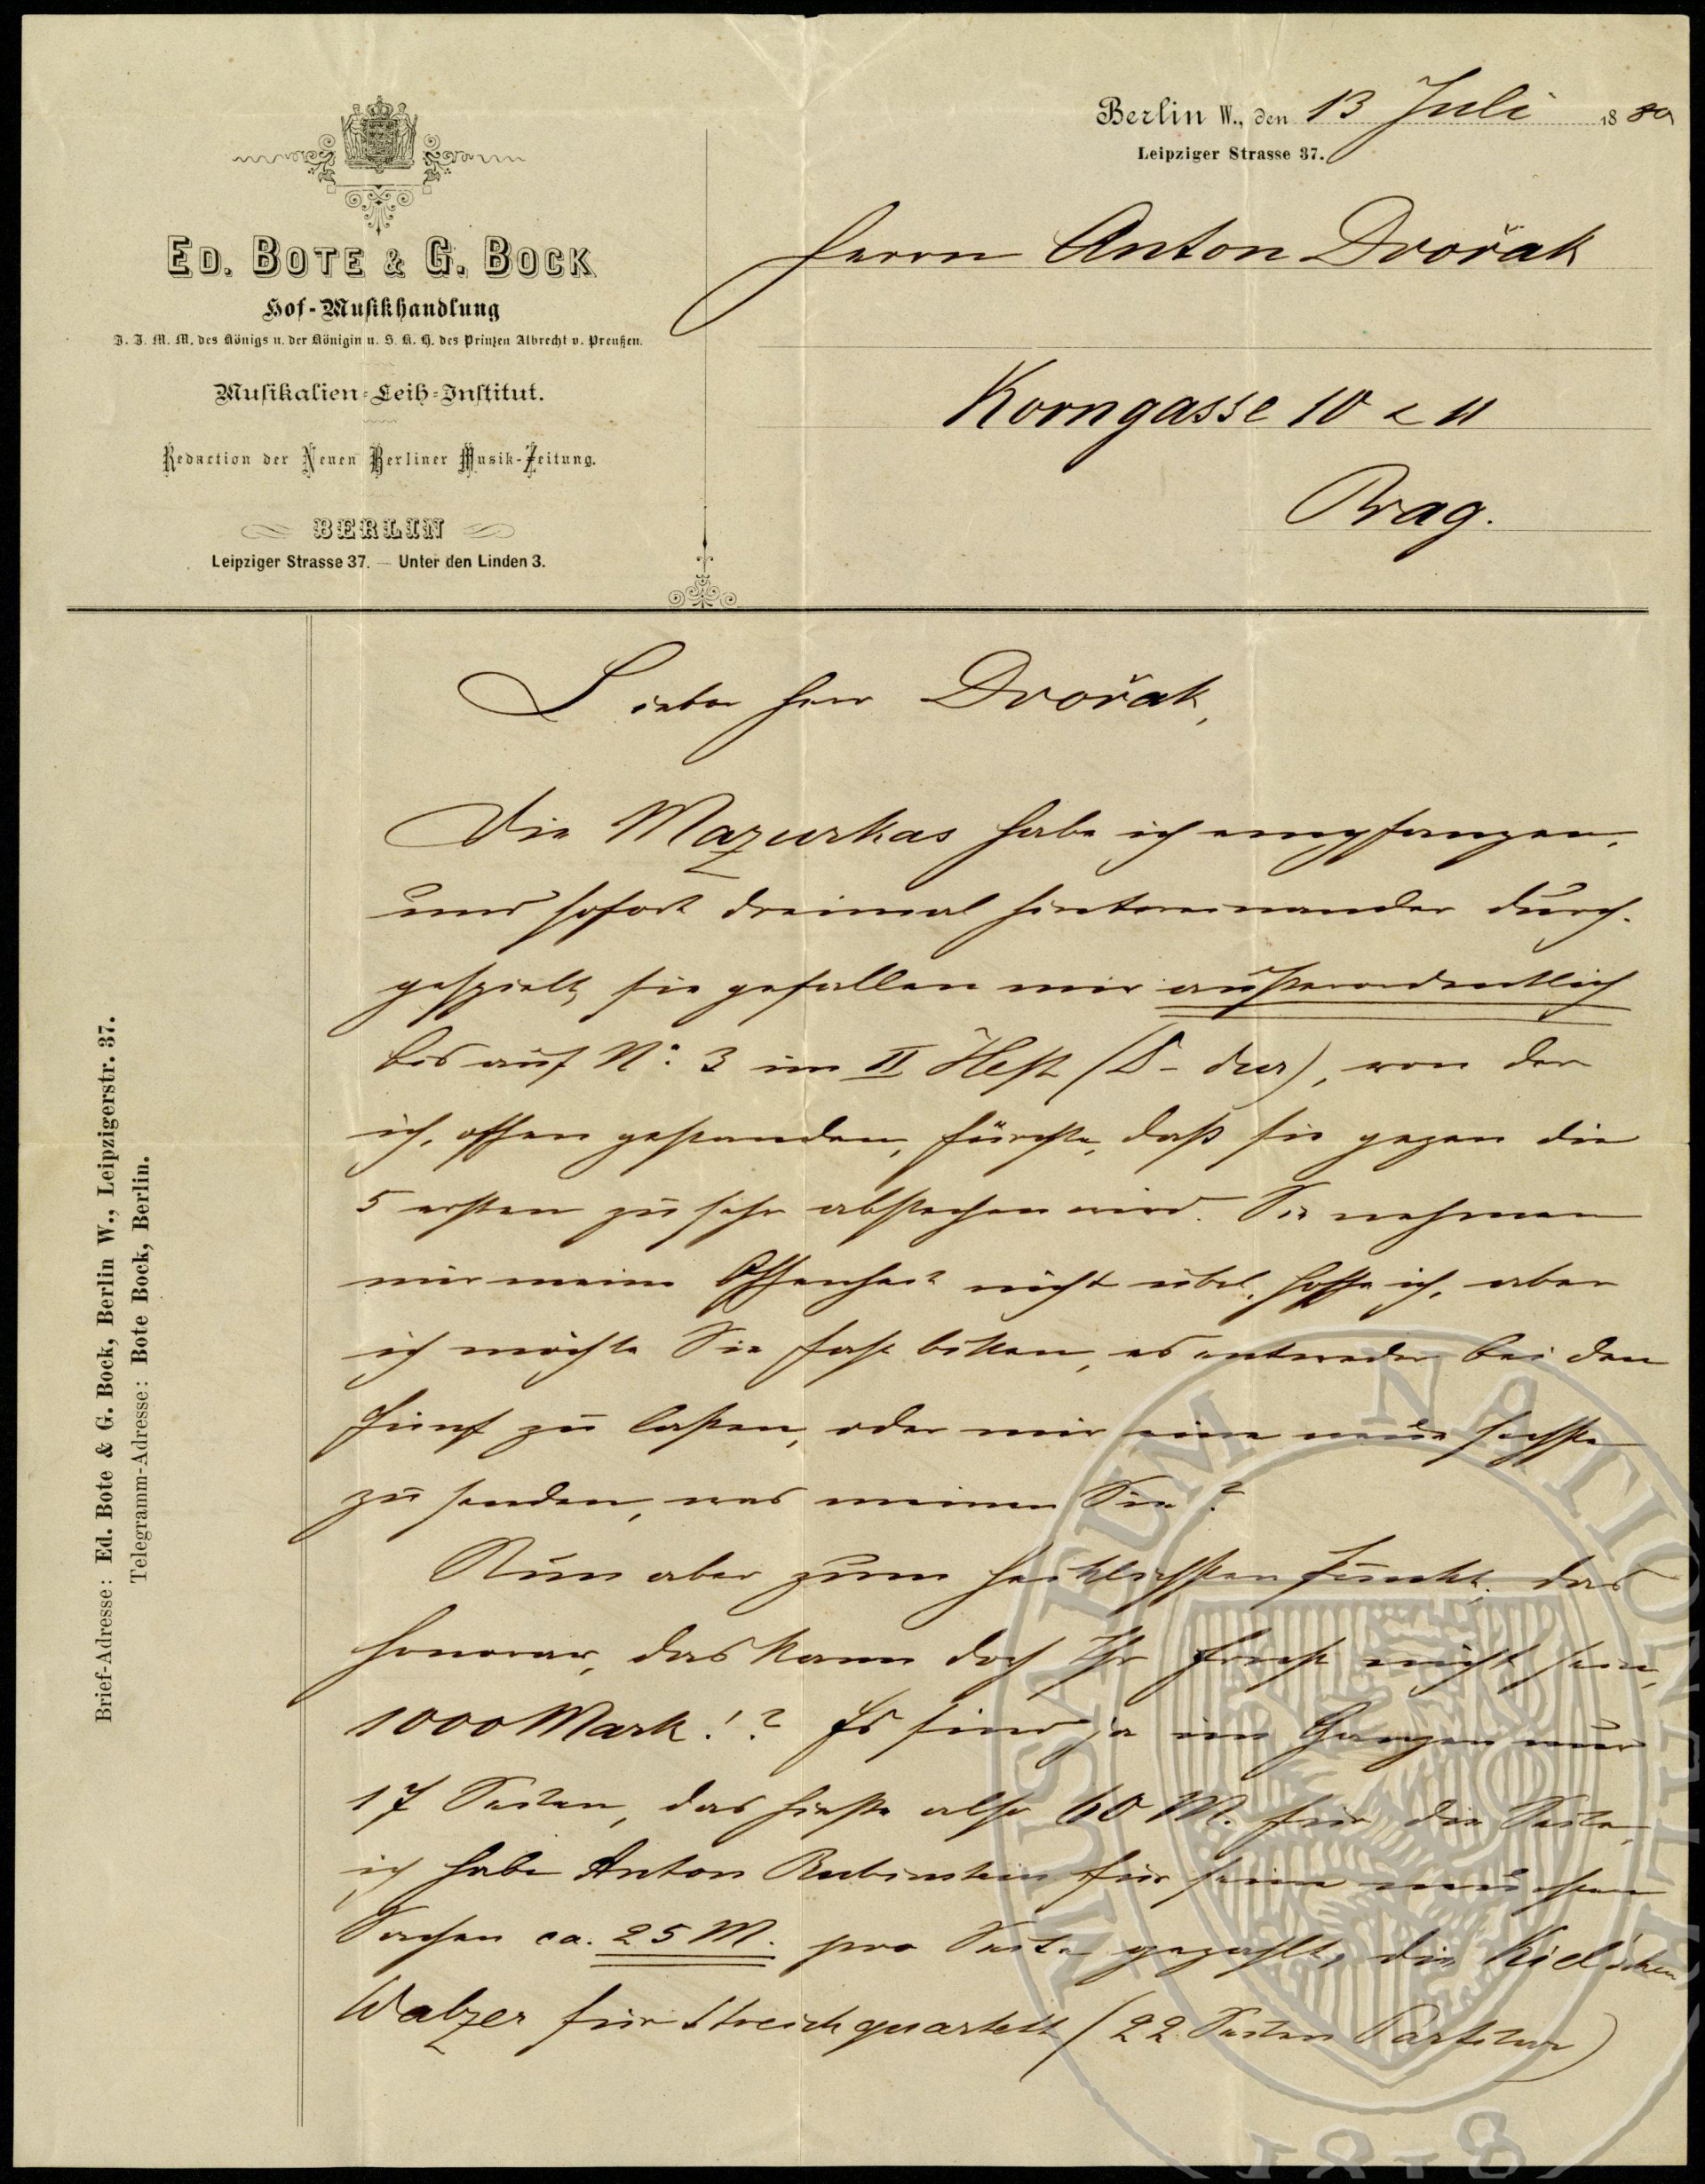 Berlin W., den 13 Juli 1880
Leipziger Strasse 37.
ED. BOTE & G. BOCK
Hof-Musikhandlung
I. I. M. M. des Königs u. der Königin u. S. K. H. des Prinzen Albrecht v. Preußen.
Musikalien-Leih-Institut.
Redaction der Neuen Berliner Musik-Zeitung.
BERLIN
Leipziger Strasse 37. — Unter den Linden 3.
Herrn Anton Dvořak
Korngasse 10 & 11
Prag.
Brief-Adresse: Ed. Bote & G. Bock, Berlin W., Leipzigerstr. 37.
Telegramm-Adresse: Bote Bock, Berlin.
Lieber Herr Dvořak,
Die Mazurkas habe ich empfangen,
und sofort dreimal hintereinander durch-
gespielt, sie gefallen mir außerordentlich
bis auf No: 3 im II Heft (D-dur), von der
ich, offen gestanden, fürchte, daß sie gegen die
5 ersten zu sehr abstechen wird. Sie nehmen
mir meine Offenheit nicht übel, hoffe ich, aber
ich möchte Sie fast bitten, es entweder bei den
Fünf zu laßen, oder mir eine neue sechste
zu senden, was meinen Sie?
Nun aber zum heiklichsten Punkt, das
Honorar, das kann doch Ihr Ernst nicht sein,
1000 Mark!? Es sind ja im Ganzen nur
17 Seiten, das hieße also 60 M. für die Seite,
ich habe Anton Rubinstein für seine neusten
Sachen ca. 25 M. pro Seite gezahlt, die Kiel'schen
Walzer für Streichquartett (22 Seiten Partitur)
MUSAEUM NATIONALE
1818